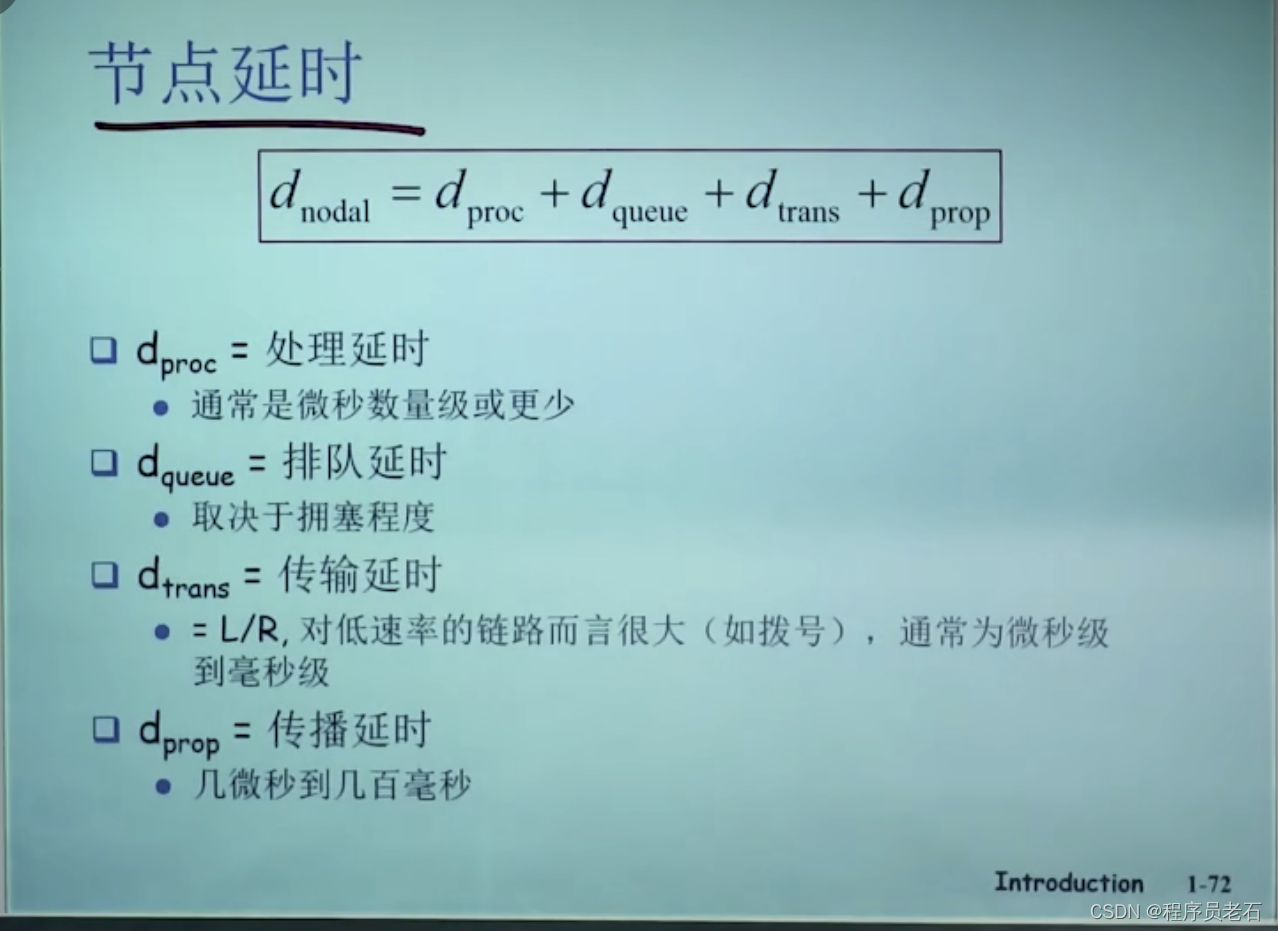 节点延时
d_nodal = d_proc + d_queue + d_trans + d_prop
❑ d_proc = 处理延时
• 通常是微秒数量级或更少
❑ d_queue = 排队延时
• 取决于拥塞程度
❑ d_trans = 传输延时
• = L/R, 对低速率的链路而言很大（如拨号），通常为微秒级
到毫秒级
❑ d_prop = 传播延时
• 几微秒到几百毫秒
Introduction 1-72
CSDN @程序员老石